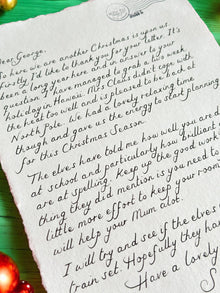 Dear George,
So here we are another Christmas is upon us
Firstly I'd like to thank you for your letter. It's
been a long year here and in answer to your
question, I have managed to grab a two week
holiday in Hawaii. Mrs Claus didn't cope with
the heat too well and is pleased to be back at
North Pole. We had a lovely relaxing time
though and gave us the energy to start planning
for this Christmas Season.
The elves have told me how well you are d
at school and particularly how brilliant
are at spelling. Keep up the good work
thing they did mention is you need to
little more effort to keep your room
will help your Mum alot.
I will try and see if the elves
train set. Hopefully they have
Have a lovely